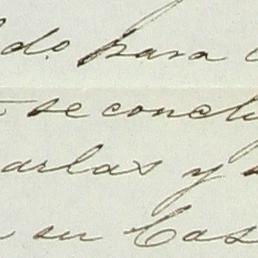 do. para
se conclu
arlas y
en su Cas